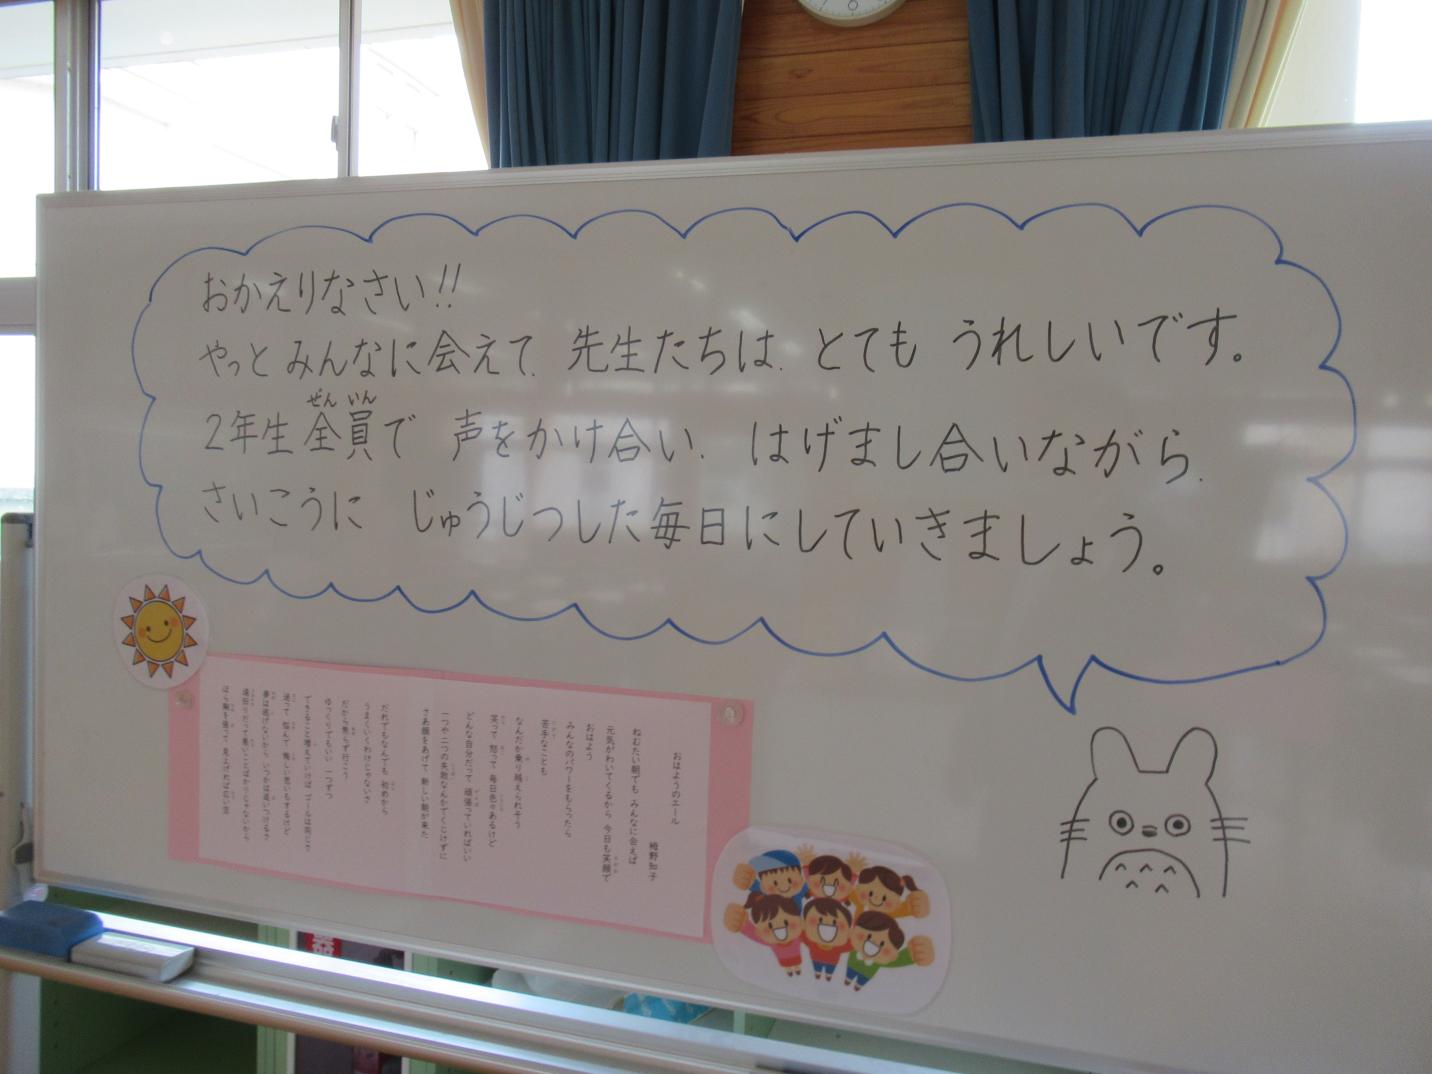 おかえりなさい!!
やっと みんなに会えて、先生たちは、とても うれしいです。
2年生全員で 声をかけ合い、はげまし合いながら、
ぜんいん
さいこうに じゅうじつした毎日にしていきましょう。
おはようのエール
ねむたい朝でも みんなに会えば
元気がわいてくるから 今日も笑顔で
おはよう
みんなのパワーをもらったら
苦手なことも
なんだか乗り越えられそう
笑って 怒って 毎日色々あるけど
どんな自分だって 頑張っていればいい
一つや二つの失敗なんかでくじけずに
さあ顔をあげて、新しい朝が来た
だれでもなんでも 初めから
うまくいくわけじゃないさ
だから焦らず行こう
ゆっくりでもいい 一つずつ
できること増えていけば ゴールは同じさ
迷って 悩んで 悔しい思いもするけど
夢は逃げないから、いつかは追いつけるさ
遠回りだって悪いことばかりじゃないから
ほら胸を張って、見上げれば広い空